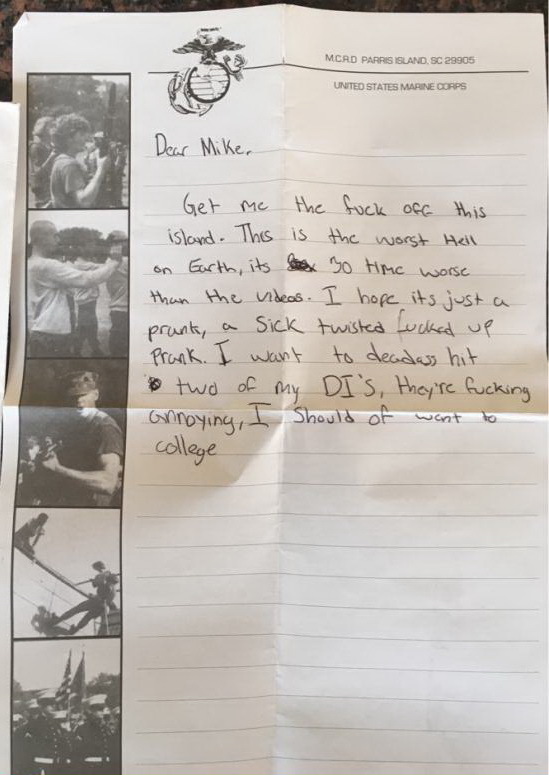 M.C.R.D PARRIS ISLAND, SC 29905
UNITED STATES MARINE CORPS
Dear Mike,
Get me the fuck off this
island. This is the worst Hell
on Earth, its 30 time worse
than the videos. I hope its just a
prank, a sick twisted fucked up
Prank. I want to deadass hit
two of my DI'S, they're fucking
annoying, I should of went to
college